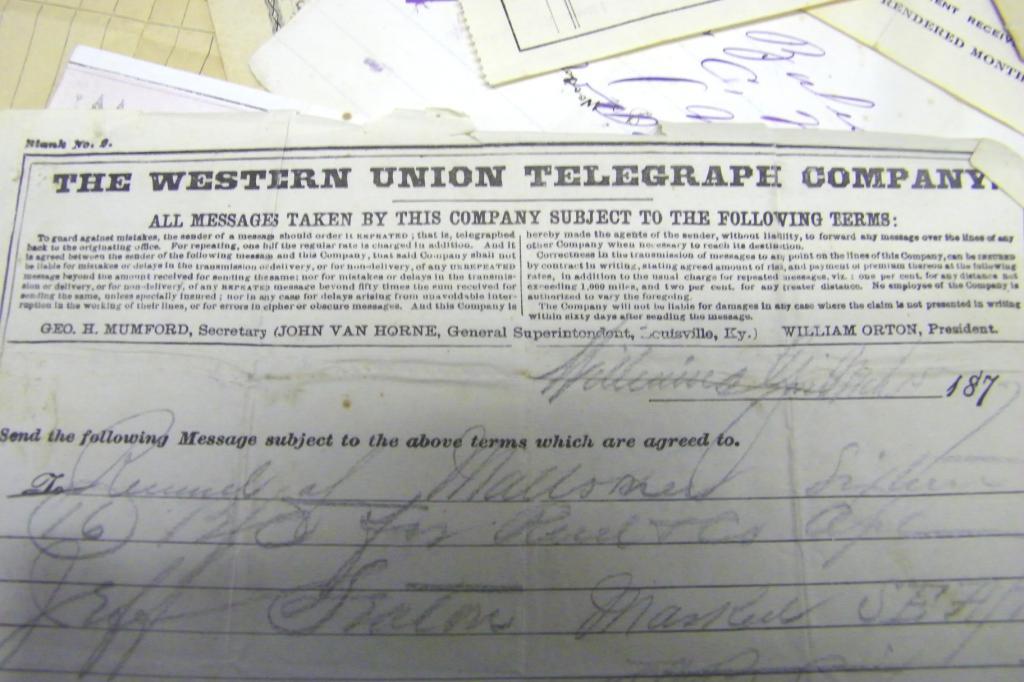 ENT RECEIV
RENDERED MONTH
Blank No. 2.
THE WESTERN UNION TELEGRAPH COMPANY.
ALL MESSAGES TAKEN BY THIS COMPANY SUBJECT TO THE FOLLOWING TERMS:
To guard against mistakes, the sender of a message should order it REPEATED; that is, telegraphed
back to the originating office. For repeating, one half the regular rate is charged in addition. And it
is agreed between the sender of the following message and this Company, that said Company shall not
be liable for mistakes or delays in the transmission or delivery, or for non-delivery, of any UNREPEATED
message beyond the amount received for sending the same; nor for mistakes or delays in the transmis-
sion or delivery, or for non-delivery, of any REPEATED message beyond fifty times the sum received for
sending the same, unless specially insured; nor in any case for delays arising from unavoidable inter-
ruption in the working of their lines, or for errors in cipher or obscure messages. And this Company is
hereby made the agents of the sender, without liability, to forward any message over the lines of any
other Company when necessary to reach its destination.
Correctness in the transmission of messages to any point on the lines of this Company, can be INSURED
by contract in writing, stating agreed amount of risk, and payment of premium thereon at the following
rates, in addition to the usual charge for repeated messages, viz: one per cent. for any distance not
exceeding 1,000 miles, and two per cent. for any greater distance. No employee of the Company is
authorized to vary the foregoing.
The Company will not be liable for damages in any case where the claim is not presented in writing
within sixty days after sending the message.
GEO. H. MUMFORD, Secretary (JOHN VAN HORNE, General Superintendent, Louisville, Ky.) WILLIAM ORTON, President.
187
Send the following Message subject to the above terms which are agreed to.
To of
(16) for & Co
Jeff